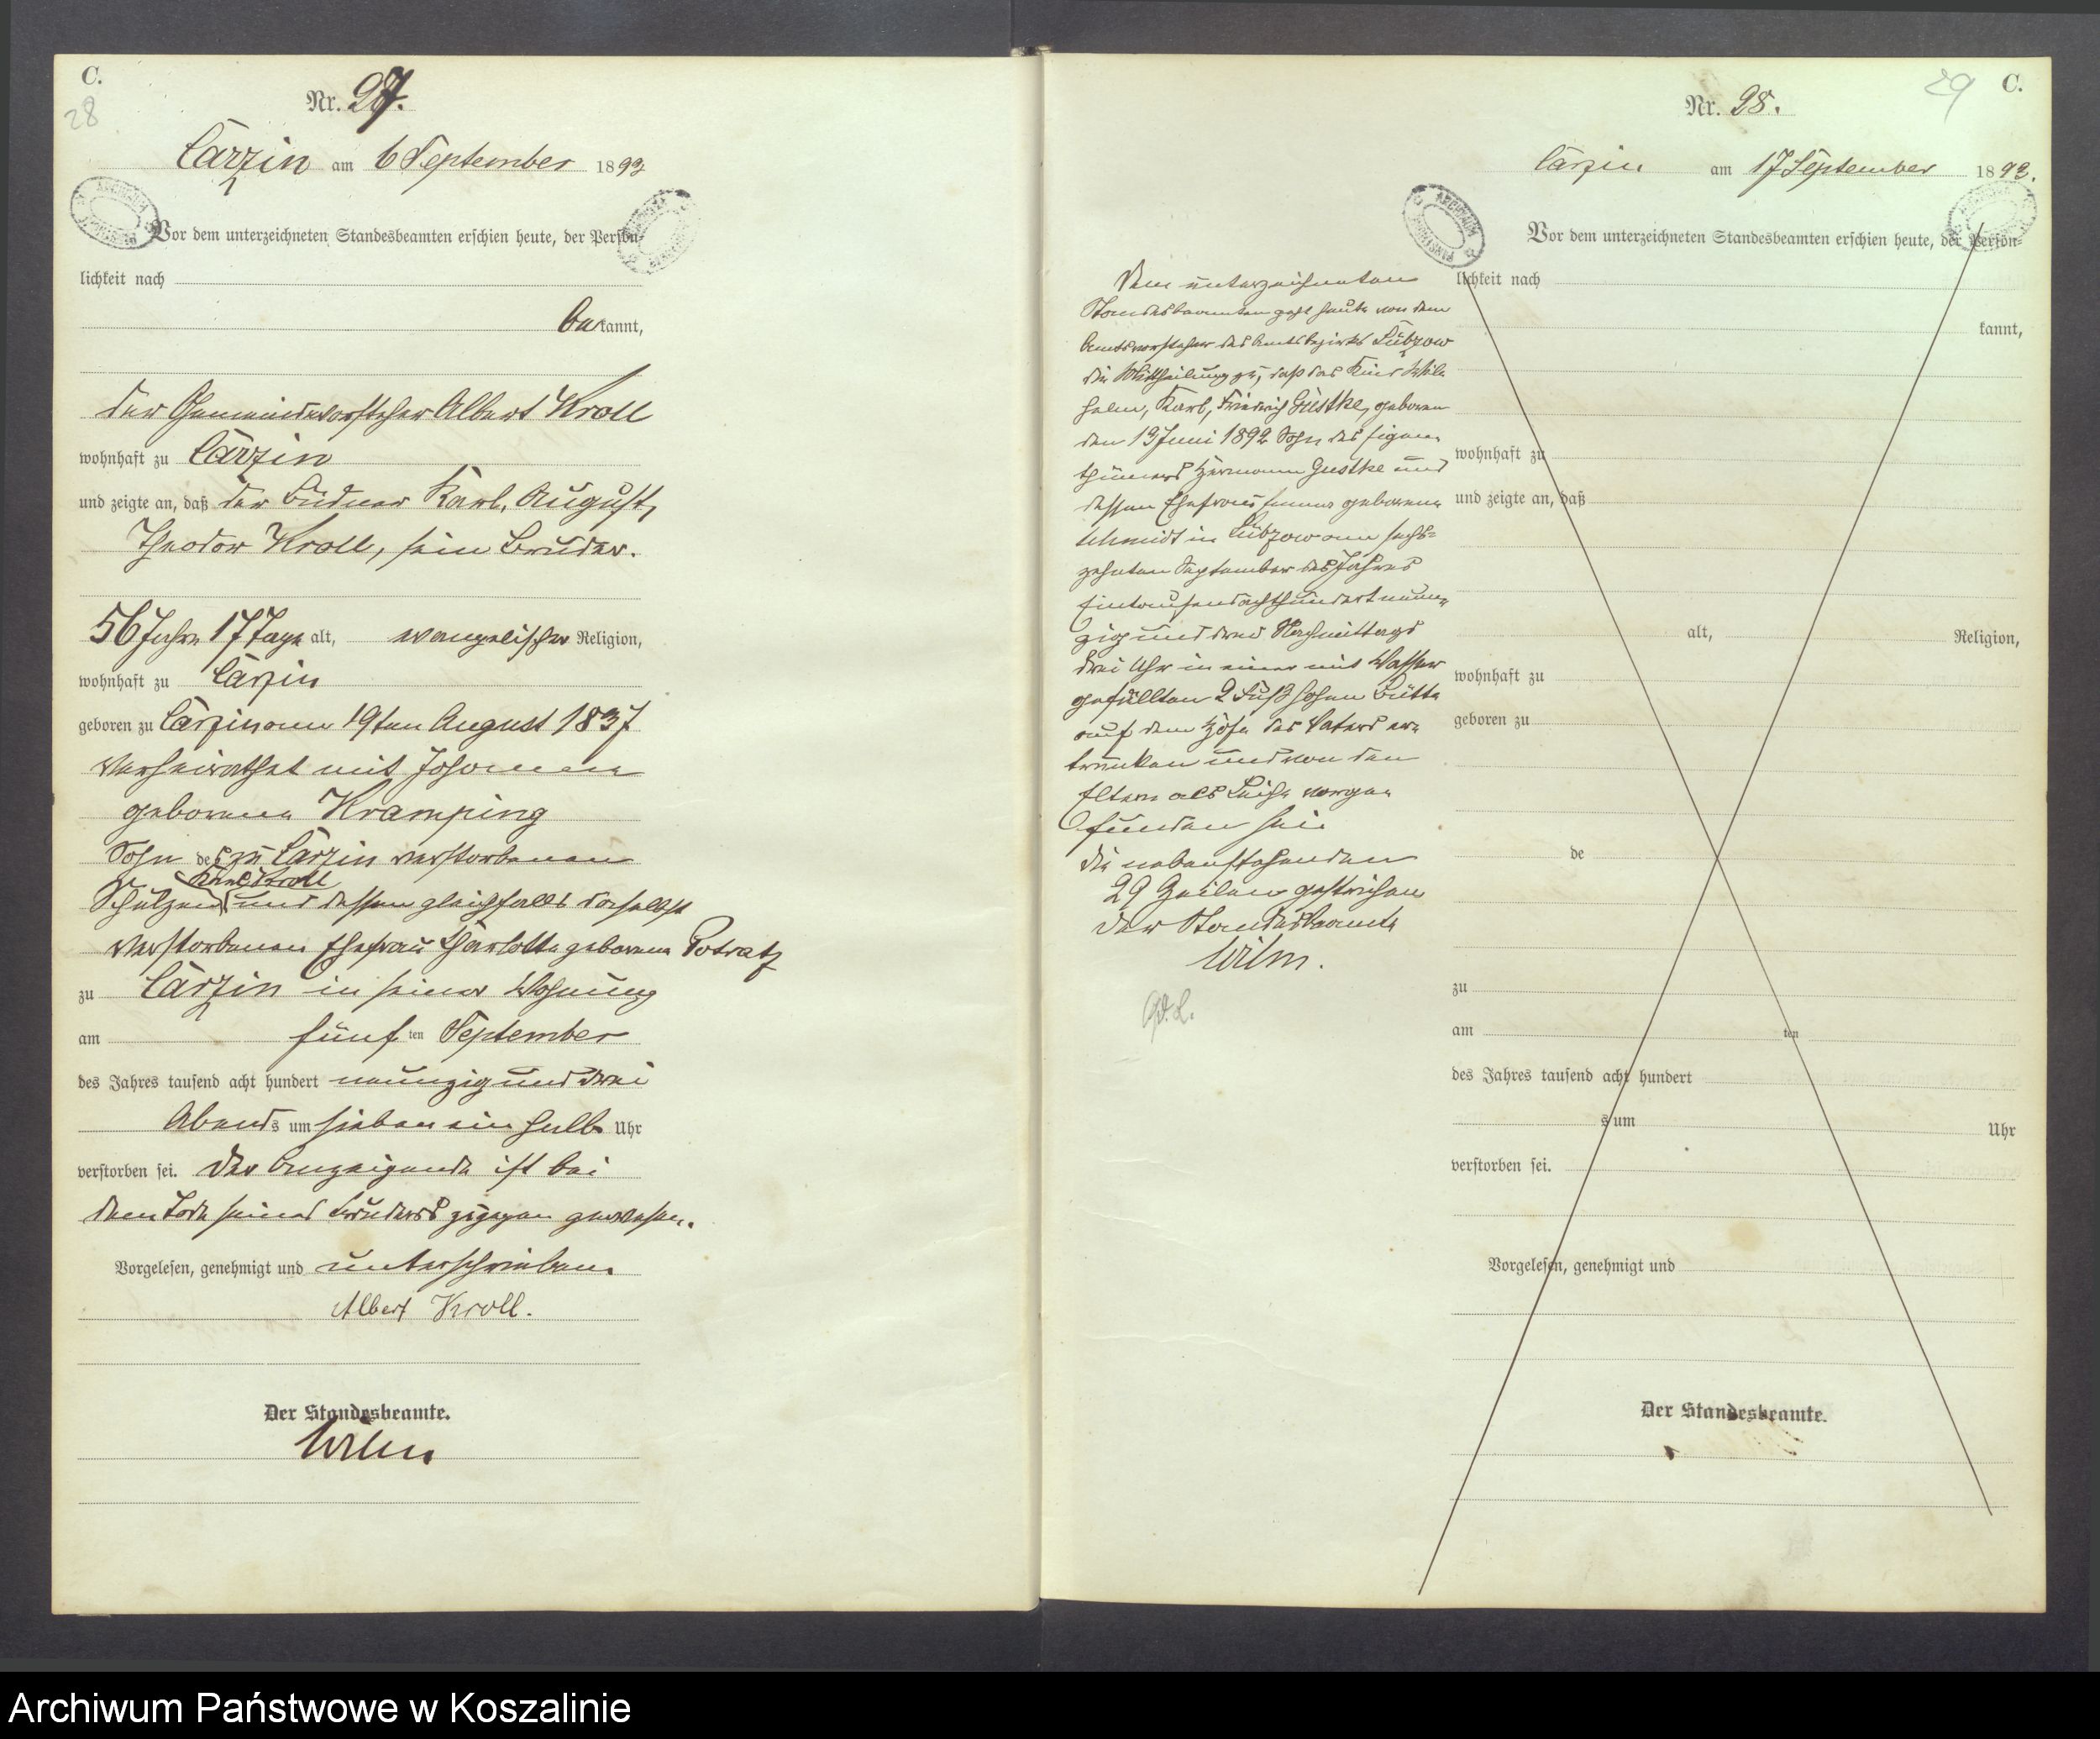 C.
28
Nr. 27.
Carzin am 6 September 1893
Vor dem unterzeichneten Standesbeamten erschien heute, der Persön-
lichkeit nach
bekannt,
der Gemeindevorsteher Albert Kroll
wohnhaft zu Carzin
und zeigte an, daß der Büdner Karl, August,
Theodor Kroll, sein Bruder.
56 Jahre 17 Tage alt, evangelischer Religion,
wohnhaft zu Carzin
geboren zu Carzin am 19ten August 1837
verheirathet mit Johanne
geborene Kramping
Sohn des zu Carzin verstorbenen
Karl Kroll
Schulzen und dessen gleichfalls daselbst
verstorbenen Ehefrau Charlotte geborene Potratz
zu Carzin in seiner Wohnung
am fünf ten September
des Jahres tausend acht hundert neunzig und drei
Abends um sieben ein halb Uhr
verstorben sei. Der Anzeigende ist bei
dem Tode seines Bruders zugegen gewesen.
Vorgelesen, genehmigt und unterschrieben
Albert Kroll.
Der Standesbeamte.
Wilm
29
C.
Nr. 28.
Carzin am 17 September 1893.
Vor dem unterzeichneten Standesbeamten erschien heute, der Persön-
lichkeit nach
kannt,
wohnhaft zu
und zeigte an, daß
alt, Religion,
wohnhaft zu
geboren zu
de
zu
am ten
des Jahres tausend acht hundert
s um Uhr
verstorben sei.
Vorgelesen, genehmigt und
Der Standesbeamte.
Dem unterzeichneten
Standesbeamten geht heute von dem
Amtsvorsteher des Amtsbezirks Lübzow
die Mittheilung zu, daß das Kind Wil-
helm, Karl, Friedrich Gustke, geboren
den 13 Juni 1892 Sohn des Eigen-
thümers Hermann Gustke und
dessen Ehefrau geborene
Schmidt in Lübzow am sechs-
zehnten September des Jahres
Eintausendachthundertneun-
zig und drei Nachmittags
drei Uhr in einer mit Wasser
gefüllten 2 Fuß hohen Bütte
auf dem Hofe des Vaters er-
trunken und von den
Eltern als Leiche vorge-
funden sei.
Die nebenstehenden
29 Zeilen gestrichen
Der Standesbeamte
Wilm.
Archiwum Państwowe w Koszalinie